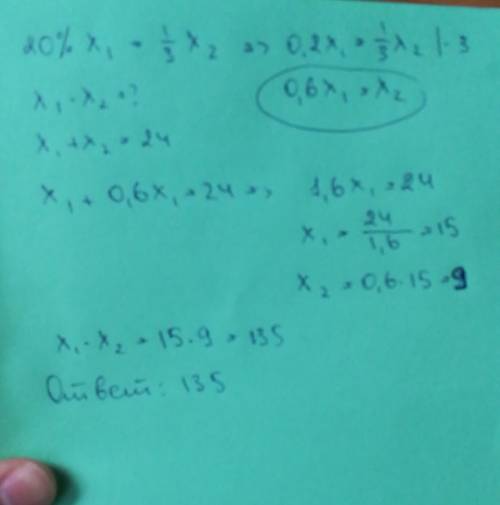 20% x₁ = 1/3 x₂ => 0,2x₁ = 1/3 x₂ |·3
x₁·x₂ = ?
0,6x₁ = x₂
x₁ + x₂ = 24
x₁ + 0,6x₁ = 24 => 1,6x₁ = 24
x₁ = 24/1,6 = 15
x₂ = 0,6·15 = 9
x₁·x₂ = 15·9 = 135
Ответ: 135